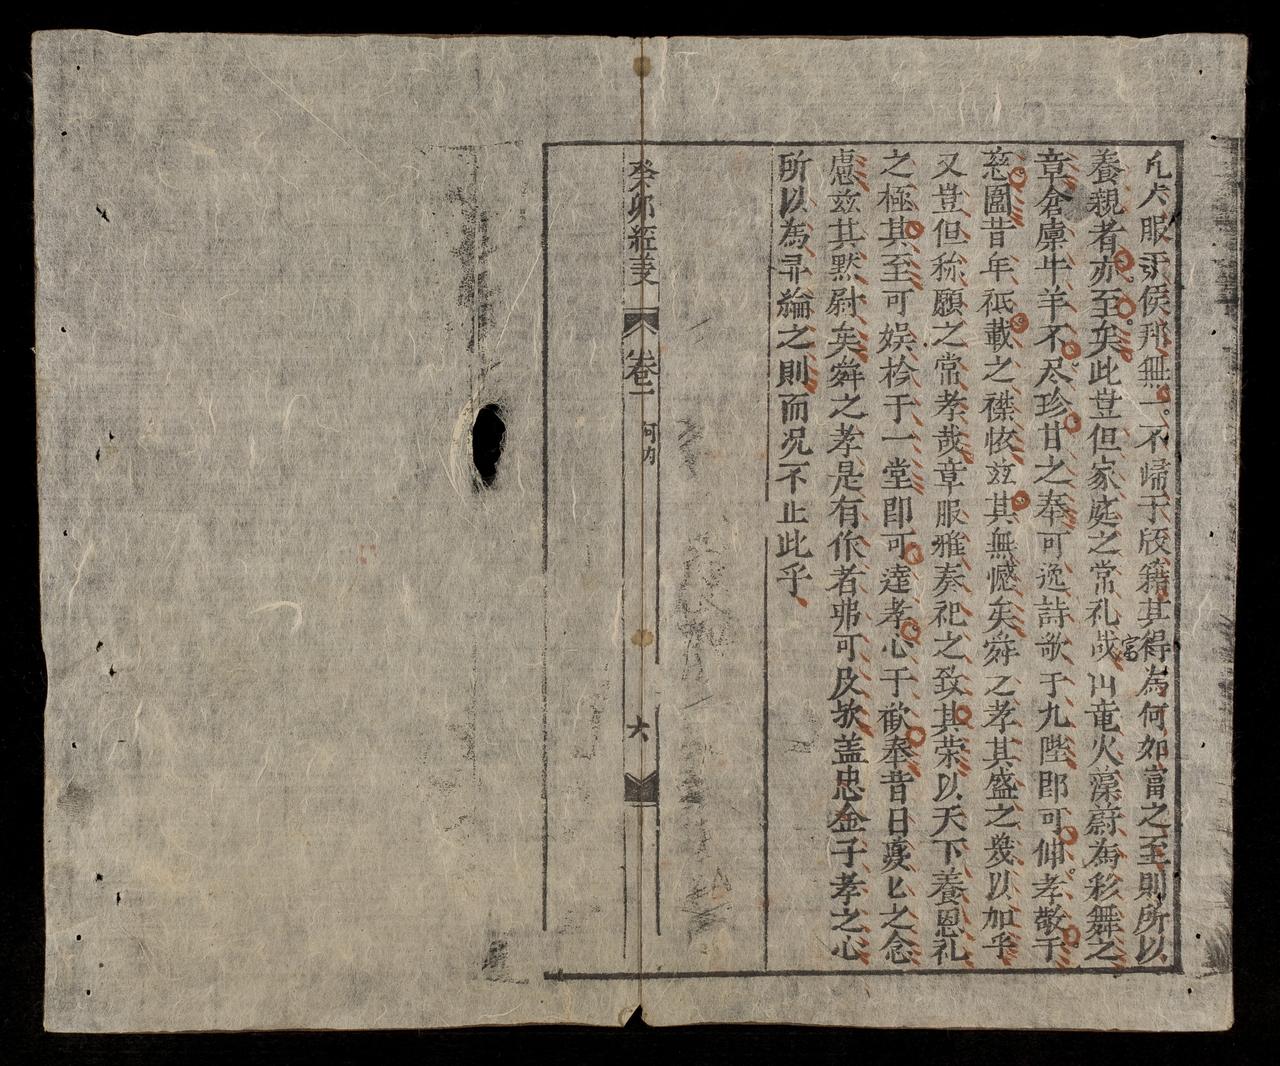 凡六服五侯邦無一不歸于版籍其得為何如富之至則所以
養親者亦至矣此豈但家庭之常礼哉山竜火藻蔚為彩舞之
章倉廩牛羊不尽珍甘之奉可逸詩歌于九陛即可伸孝敬于
慈闈昔年祗載之襟恢玆其無憾矣舜之孝其盛之幾以加乎
又豈但称願之常孝哉章服雅奏祀之致其荣以天下養恩礼
之極其至可娯衿于一堂即可達孝心于歓奉昔日蘷匕之念
慮玆其黙尉矣舜之孝是有作者弗可及欤盖忠全子孝之心
所以為尋綸之則而况不止此乎
富
癸卯經義
卷一
河内
六